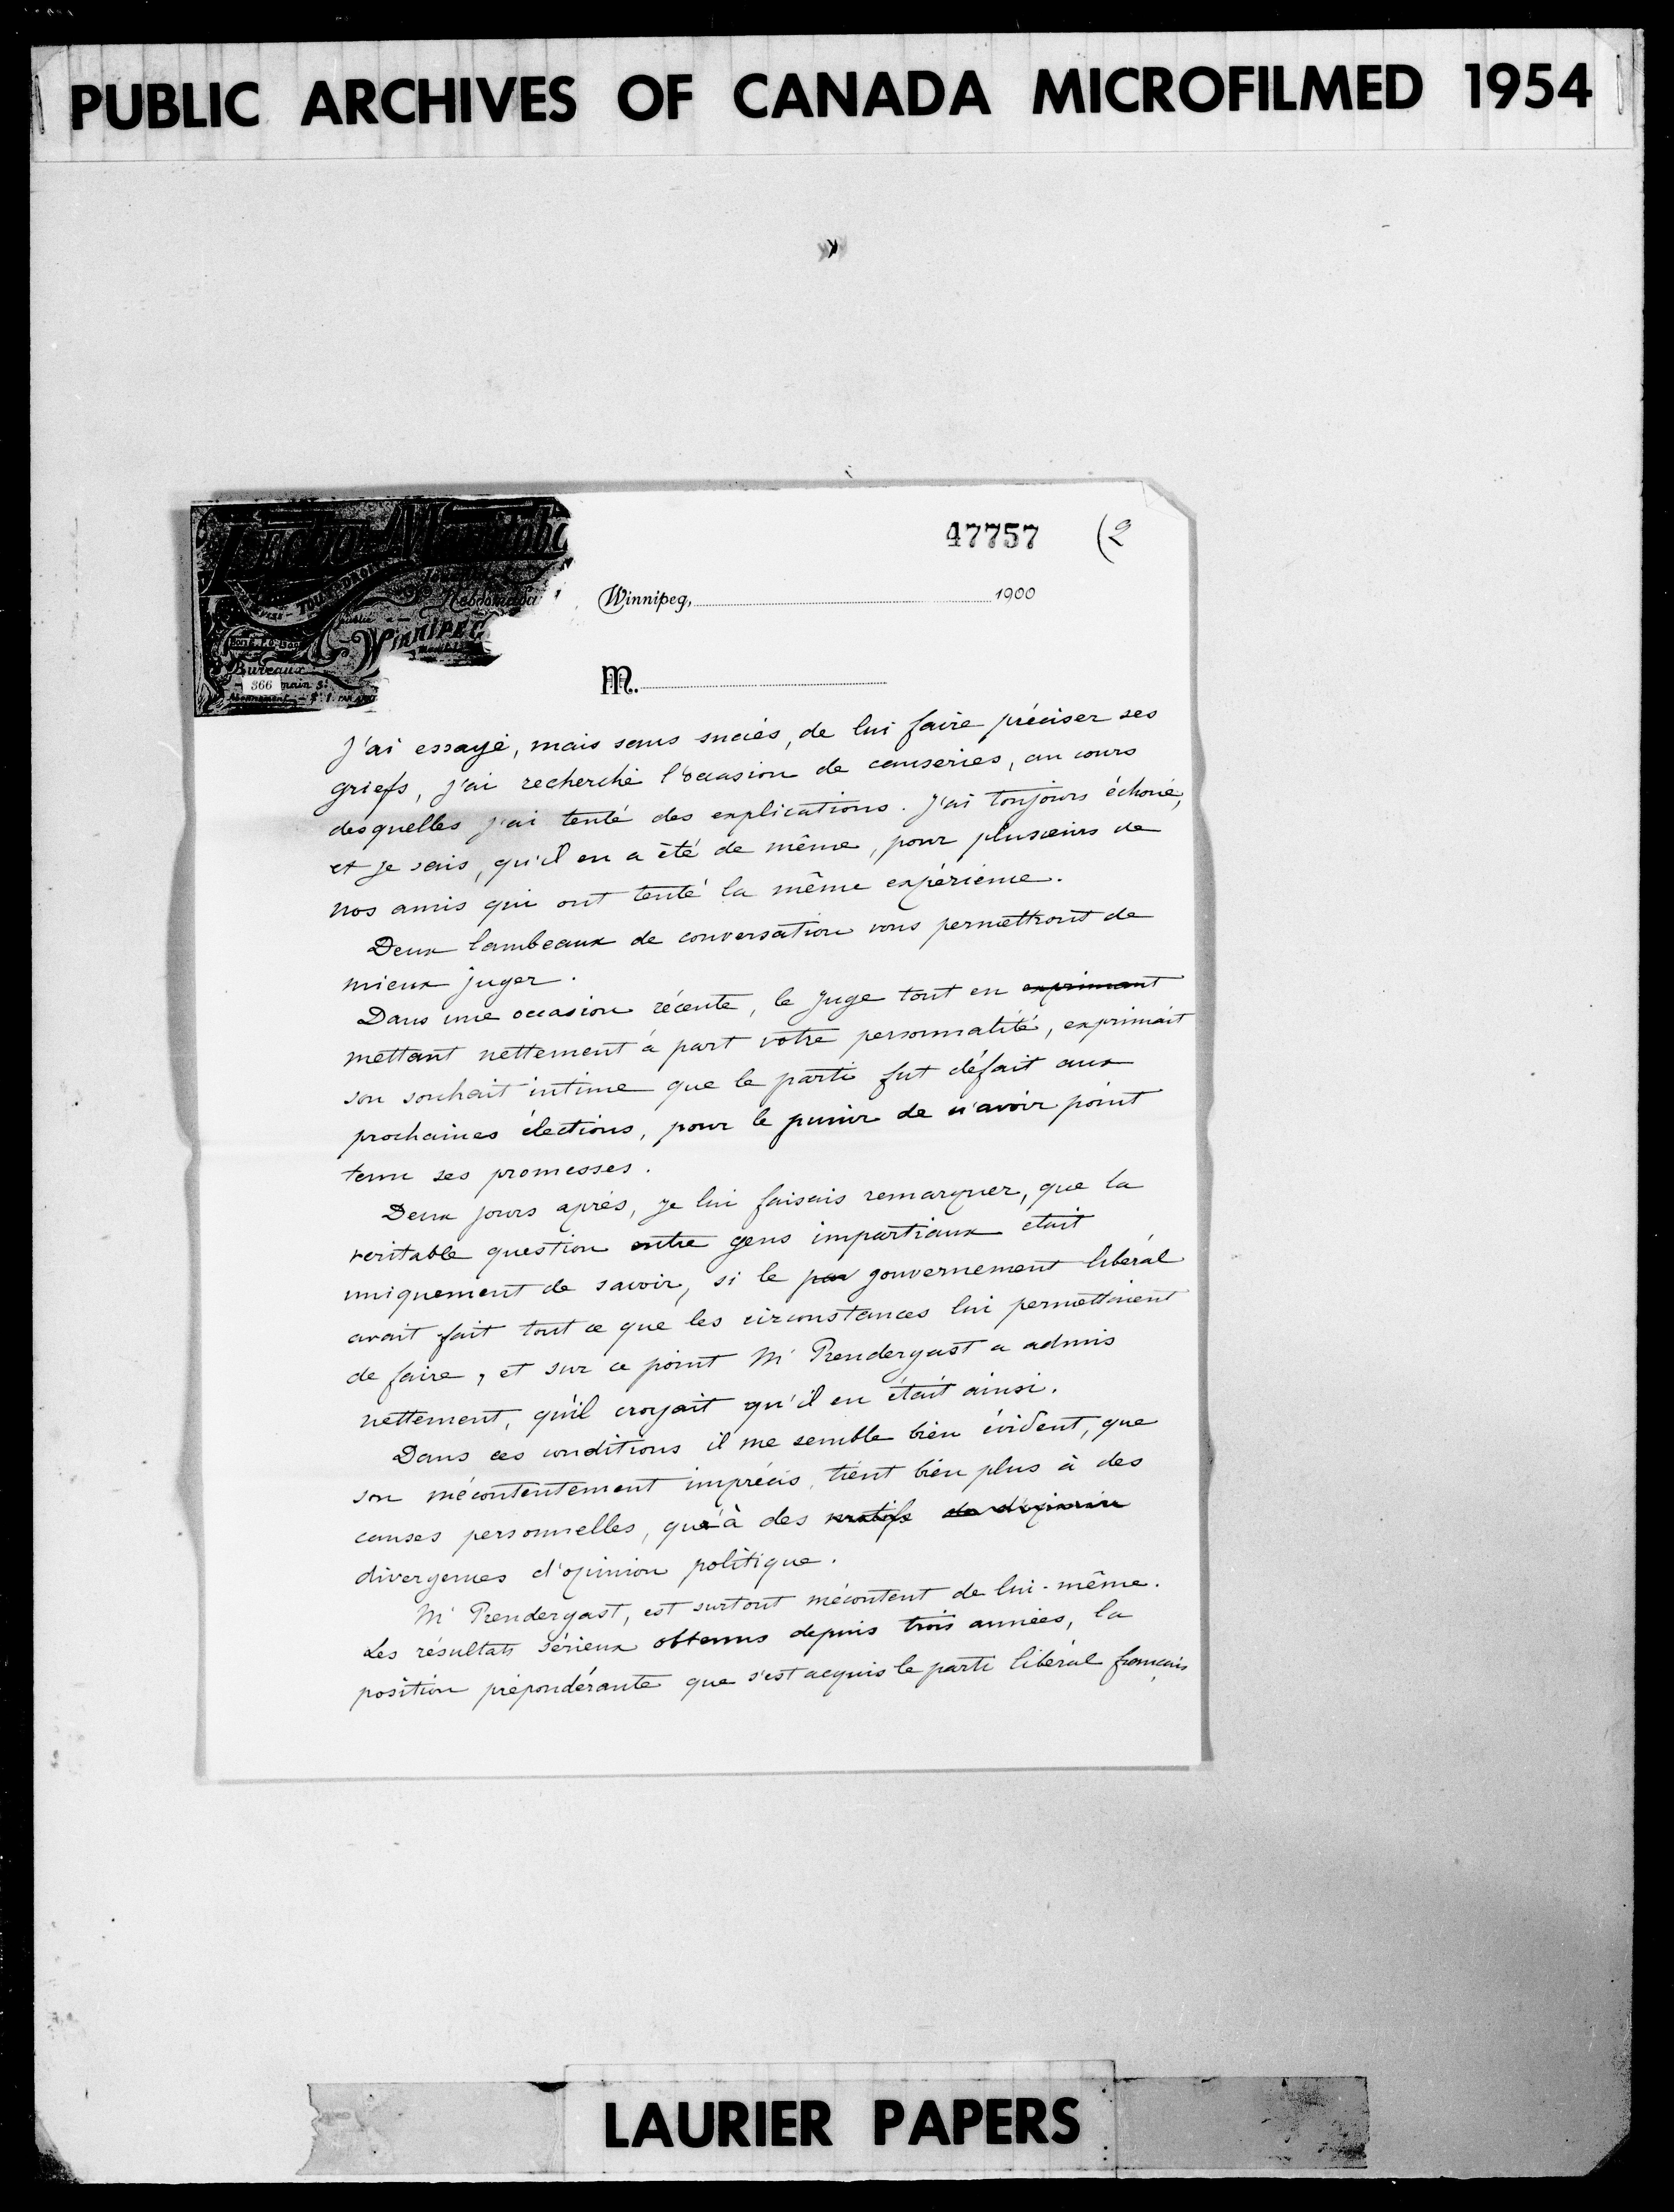 PUBLIC ARCHIVES OF CANADA MICROFILMED 1954
47757 (2
Manitoba
Hebdomadai
Winnipeg
Bureaux
366 main St
Winnipeg, 1900
M.
J'ai essayé, mais sans succès, de lui faire préciser ses
griefs, j'ai recherché l'occasion de causeries, au cours
desquelles j'ai tenté des explications. J'ai toujours échoué,
et je sais, qu'il en a été de même, pour plusieurs de
nos amis qui ont tenté la même expérience.
Deux lambeaux de conversation vous permettront de
mieux juger.
Dans une occasion récente, le Juge tout en exprimant
mettant nettement à part votre personnalité, exprimait
son souhait intime que le parti fut défait aux
prochaines élections, pour le punir de n'avoir point
tenu ses promesses.
Deux jours après, je lui faisais remarquer, que la
veritable question entre gens impartiaux etait
uniquement de savoir, si le par gouvernement libéral
avait fait tout ce que les circonstances lui permettaient
de faire, et sur ce point Mr Prendergast a admis
nettement, qu'il croyait qu'il en était ainsi.
Dans ces conditions il me semble bien évident, que
son mécontentement imprécis, tient bien plus à des
causes personnelles, qu'à des motifs
divergences d'opinion politique.
Mr Prendergast, est surtout mécontent de lui-même.
Les résultats sérieux obtenus depuis trois années, la
position prépondérante que s'est acquis le parti libéral français
LAURIER PAPERS